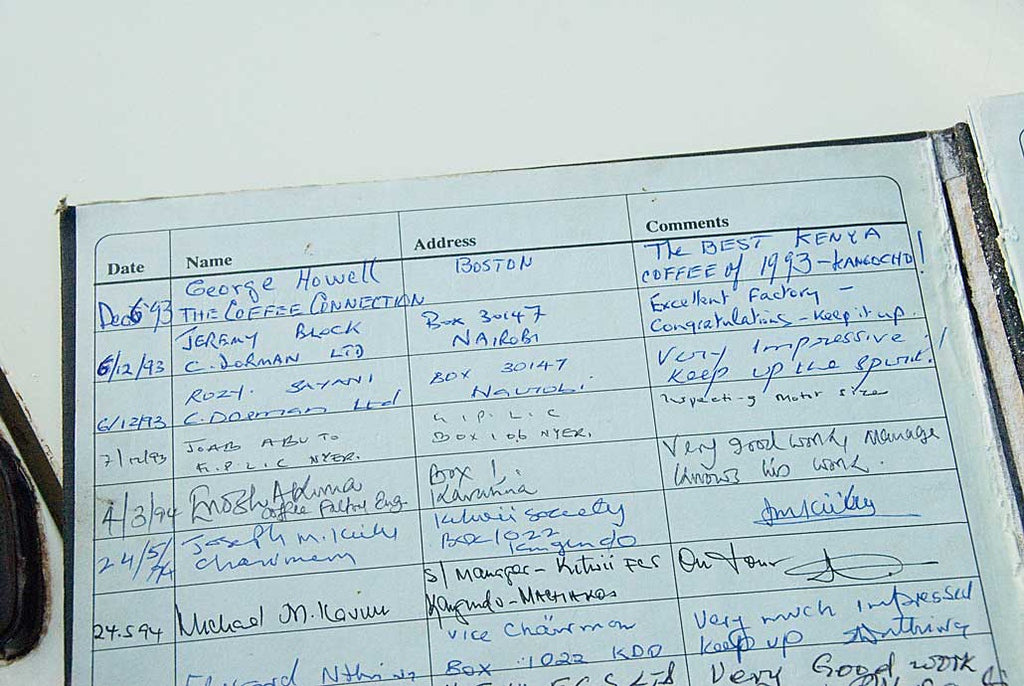 Date Name Address Comments
Dec 6 '93 George Howell BOSTON The BEST KENYA
THE COFFEE CONNECTION COFFEE of 1993 - KANGOCHO!
6/12/93 JEREMY BLOCK BOX 30147 Excellent Factory -
C. DORMAN LTD NAIROBI Congratulations - Keep it up.
6/12/93 ROZY. SAYANI BOX 30147 Very Impressive!
C. Dorman Ltd Keep up the spirit!
7/12/93 JOAB ABUTO K.P.L.C Inspecting Motor size
K.P.L.C NYERI. BOX 106 NYERI.
4/3/94 Enosh Box 1, Very good work, Manage
Coffee Factory Eng. Karatina knows his work.
24/5/94 Joseph M. Kitwii Society
Chairman BOX 1022
Kangundo
24.5.94 Michael M. S/Manager - Kitwii FCS On Tour
Kangundo - MACHAKOS
Vice Chairman Very much impressed
Box 1022 KDO keep up
Very Good work